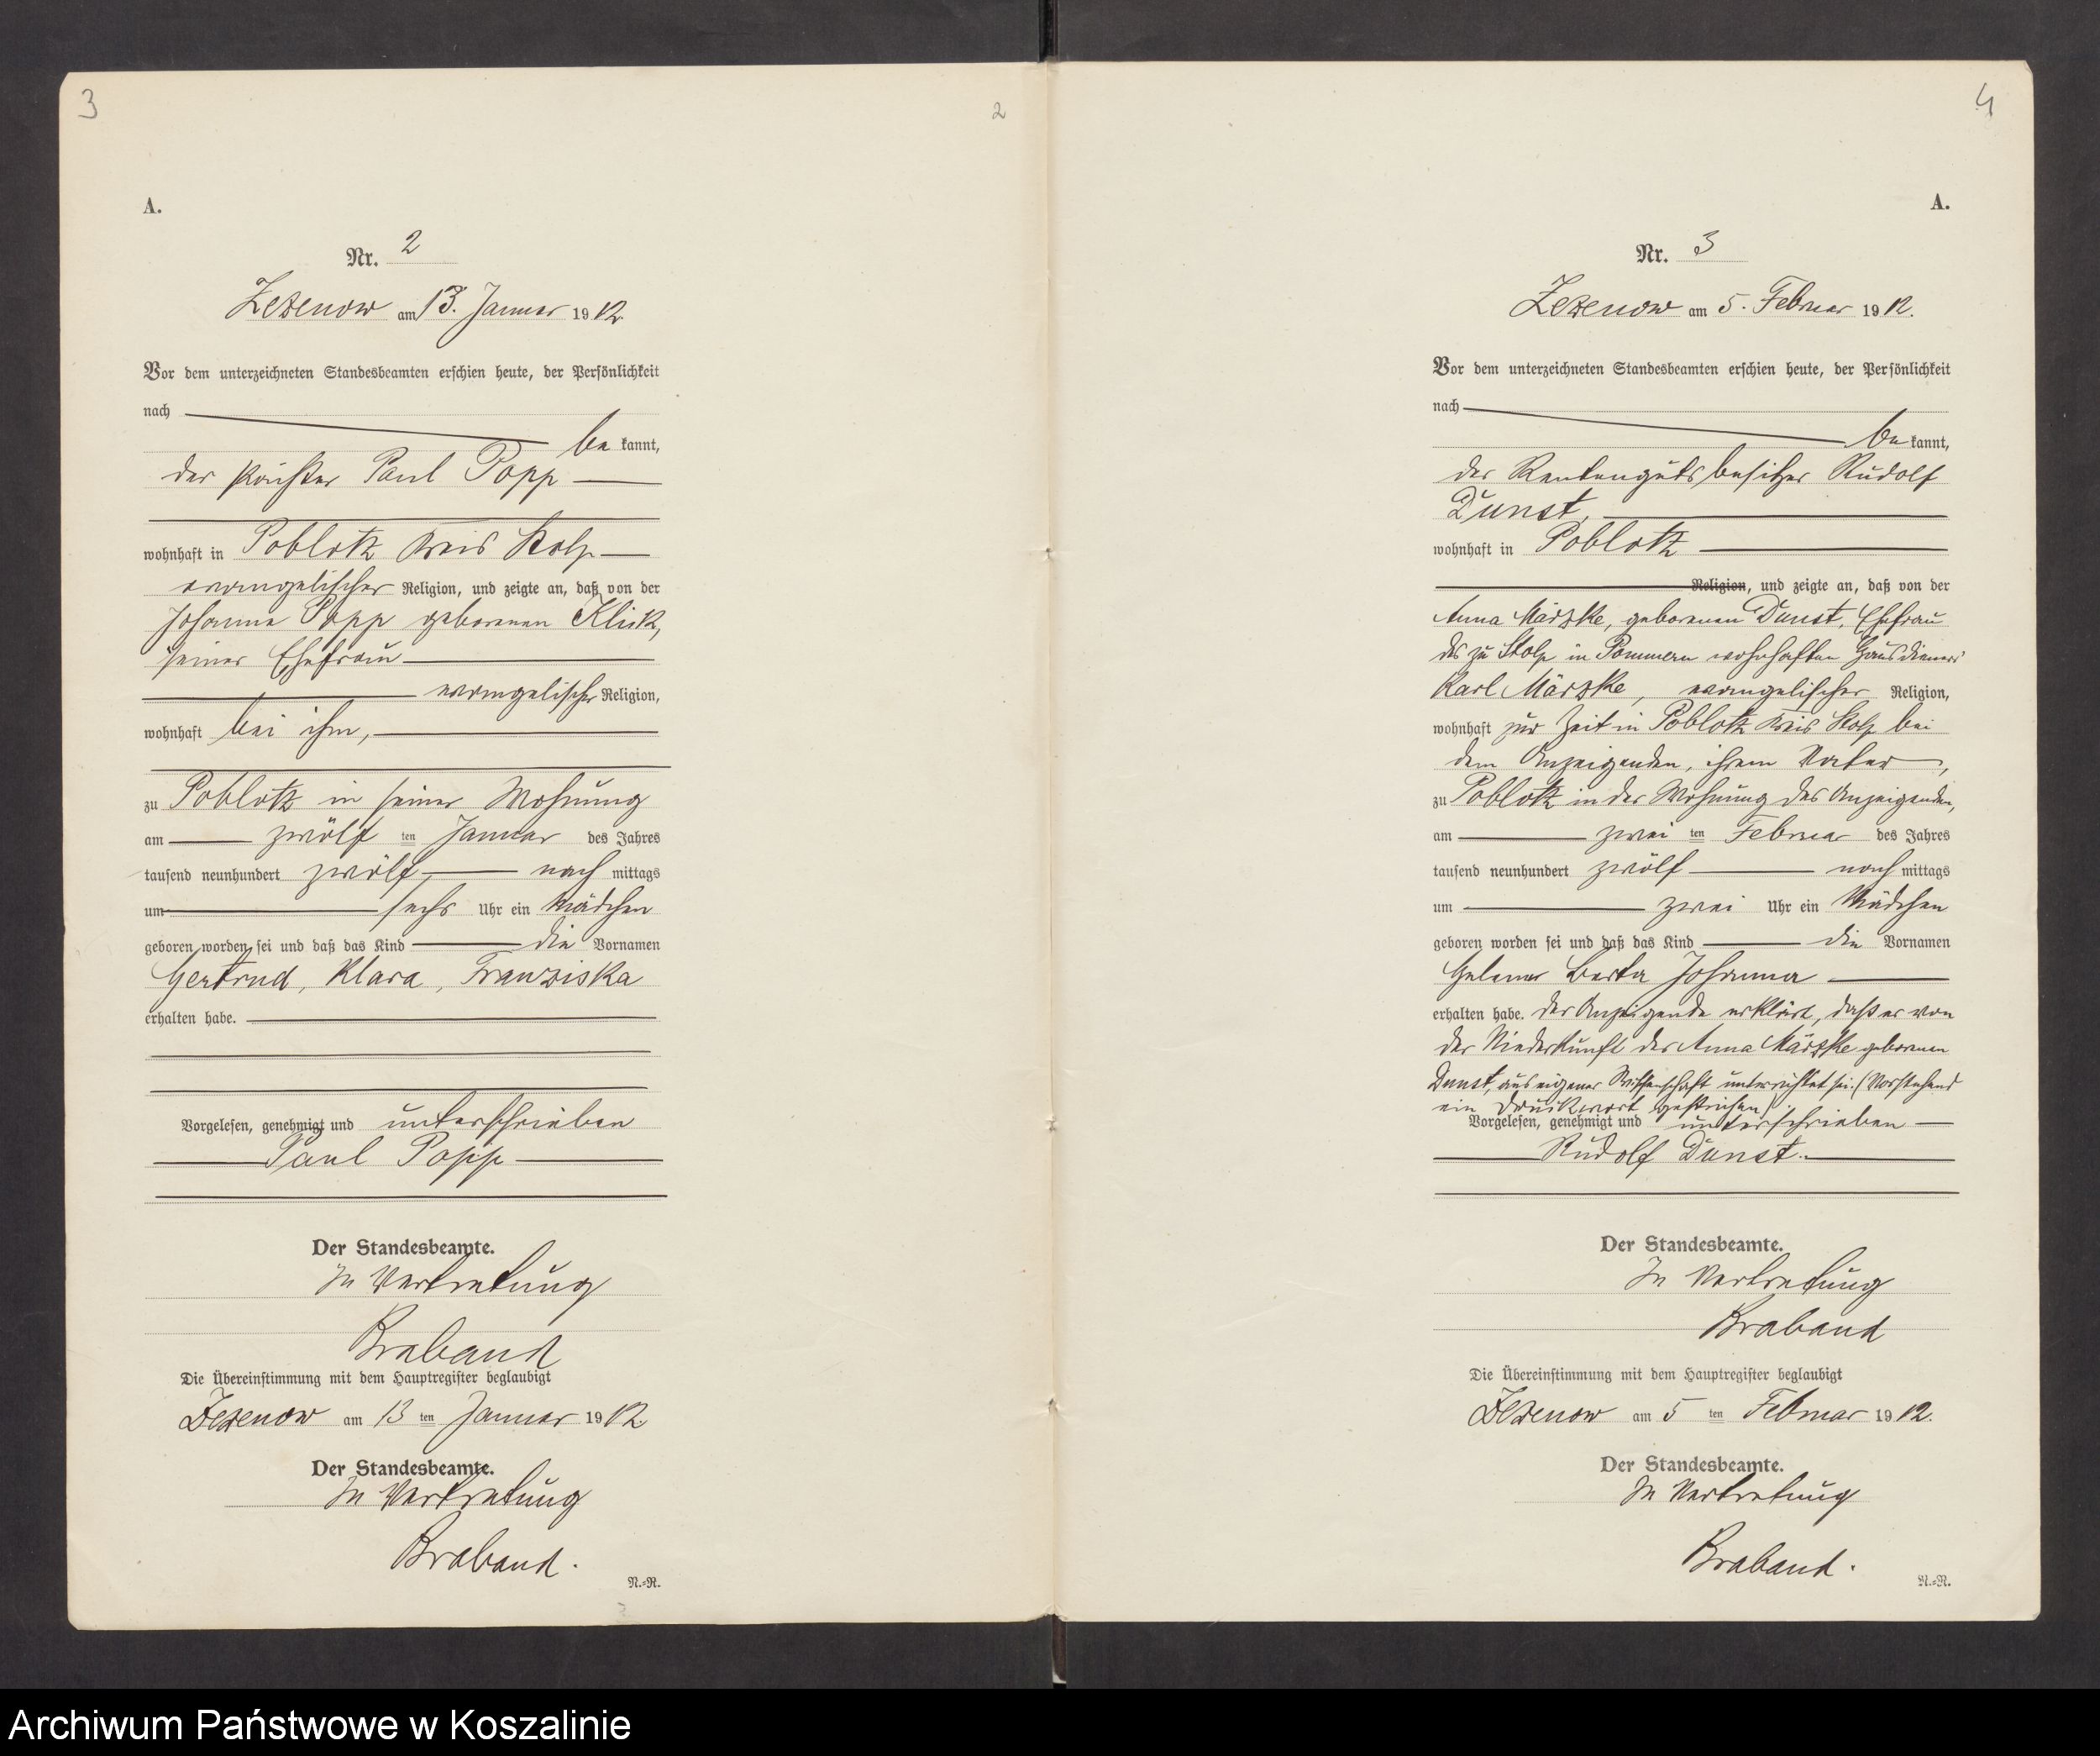 3
2
A.
Nr. 2
Zezenow am 13. Januar 1912.
Vor dem unterzeichneten Standesbeamten erschien heute, der Persönlichkeit
nach
be kannt,
der Pächter Paul Popp
wohnhaft in Poblotz Kreis Stolp
evangelischer Religion, und zeigte an, daß von der
Johanna Popp geborenen Klick,
seiner Ehefrau
evangelischer Religion,
wohnhaft bei ihm,
zu Poblotz in seiner Wohnung
am zwölf ten Januar des Jahres
tausend neunhundert zwölf, nach mittags
um sechs Uhr ein Mädchen
geboren worden sei und daß das Kind die Vornamen
Gertrud, Klara, Franziska
erhalten habe.
Vorgelesen, genehmigt und unterschrieben
Paul Popp
Der Standesbeamte.
In Vertretung
Braband
Die Übereinstimmung mit dem Hauptregister beglaubigt
Zezenow am 13 ten Januar 1912.
Der Standesbeamte.
In Vertretung
Braband.
N.=R.
4
A.
Nr. 3
Zezenow am 5. Februar 1912.
Vor dem unterzeichneten Standesbeamten erschien heute, der Persönlichkeit
nach
be kannt,
der Rentengutsbesitzer Rudolf
Dunst,
wohnhaft in Poblotz
Religion, und zeigte an, daß von der
Anna Märzke, geborenen Dunst, Ehefrau
des zu Stolp in Pommern wohnhaften Hausdieners
Karl Märzke, evangelischer Religion,
wohnhaft zur Zeit in Poblotz Kreis Stolp bei
dem Anzeigenden, ihrem Vater,
zu Poblotz in der Wohnung des Anzeigenden,
am zwei ten Februar des Jahres
tausend neunhundert zwölf nach mittags
um zwei Uhr ein Mädchen
geboren worden sei und daß das Kind die Vornamen
Berta Johanna
erhalten habe. Der Anzeigende erklärt, daß er von
der Niederkunft der Anna Märzke geborenen
Dunst, aus eigener Wissenschaft unterrichtet sei. (Vorstehend
ein Druckwort gestrichen)
Vorgelesen, genehmigt und unterschrieben
Rudolf Dunst.
Der Standesbeamte.
In Vertretung
Braband
Die Übereinstimmung mit dem Hauptregister beglaubigt
Zezenow am 5 ten Februar 1912.
Der Standesbeamte.
In Vertretung
Braband.
N.=R.
Archiwum Państwowe w Koszalinie